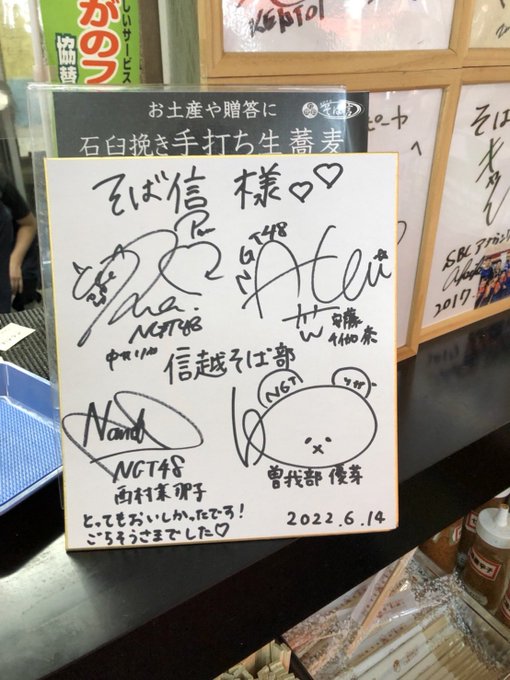 しいサービス
がのフ
協替
KENTOI
お土産や贈答に
石臼挽き手打ち生蕎麦
そば信 様♡♡
NGT48
NGT48
安藤
千伽奈
信越そば部
Nanako
NGT48
西村菜那子
NGT
りか
曽我部 優芽
とってもおいしかったです!
ごちそうさまでした♡
2022.6.14
ピーヤ
そば
SBC
2017